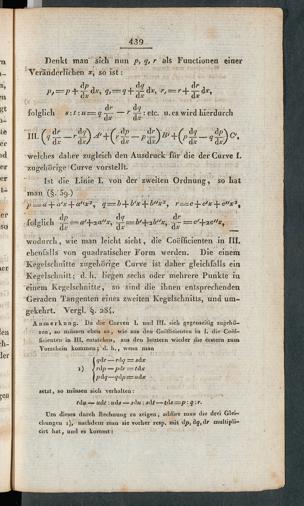 439
Denkt man sich nun p, q, r als Functionen einer
Veränderlichen x, so ist:
p, = p + dp/dx dx, q, = q + dq/dx dx, r, = r + dr/dx dx,
folglich s : t : u = q dr/dx — r dq/dx : etc. u. es wird hierdurch
III. (q dr/dx — r dq/dx) A' + (r dp/dx — p dr/dx) B' + (p dq/dx — q dp/dx) C',
welches daher zugleich den Ausdruck für die der Curve I.
zugehörige Curve vorstellt.
Ist die Linie I. von der zweiten Ordnung, so hat
man (§. 59.)
p = a + a'x + a''x², q = b + b'x + b''x², r = c + c'x + c''x²,
folglich dp/dx = a' + 2a''x, dq/dx = b' + 2b''x, dr/dx = c' + 2c''x,
wodurch, wie man leicht sieht, die Coëfficienten in III.
ebenfalls von quadratischer Form werden. Die einem
Kegelschnitte zugehörige Curve ist daher gleichfalls ein
Kegelschnitt; d. h. liegen sechs oder mehrere Punkte in
einem Kegelschnitte, so sind die ihnen entsprechenden
Geraden Tangenten eines zweiten Kegelschnitts, und um-
gekehrt. Vergl. §. 284.
Anmerkung. Da die Curven I. und III. sich gegenseitig zugehö-
ren, so müssen eben so, wie aus den Coëfficienten in I. die Coëf-
ficienten in III. entstehen, aus den letztern wieder die erstern zum
Vorschein kommen; d. h., wenn man
1) { qdr — rdq = sdx
rdp — pdr = tdx
pdq — qdp = udx
setzt, so müssen sich verhalten:
tdu — udt : uds — sdu : sdt — tds = p : q : r.
Um dieses durch Rechnung zu zeigen, addire man die drei Glei-
chungen 1), nachdem man sie vorher resp. mit dp, dq, dr multipli-
cirt hat, und es kommt: